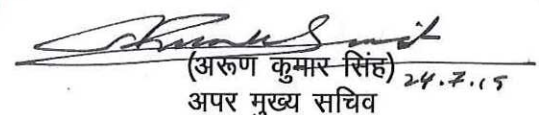 (अरूण कुमार सिंह) 24.7.15
अपर मुख्य सचिव